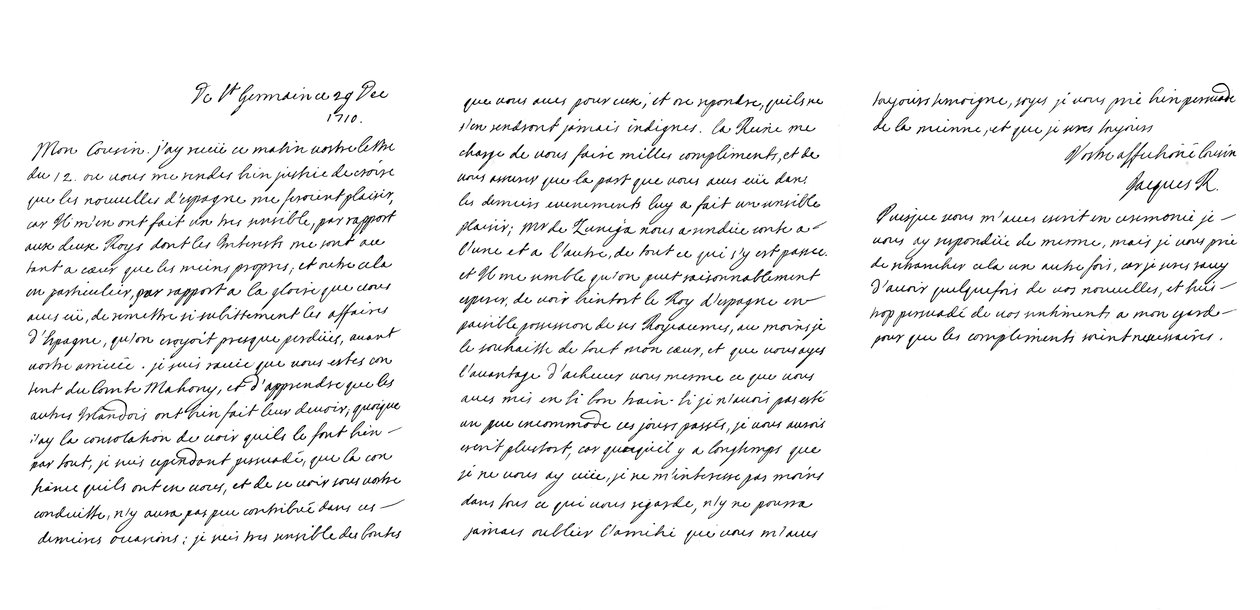 De St Germain ce 29 Dec
1710.
Mon Cousin. j'ay receu ce matin vostre lettre
du 12. ou vous me rendes bien justice de croire
que les nouvelles d'espagne me feroient plaisir,
car Il m'en ont fait un tres sensible, par rapport
aux deux Roys dont les Interests me sont au
tant a cœur que les miens propres, et outre cela
en particulier, par rapport a la gloire que vous
aues eüe, de remettre si subittement les affaires
d'Espagne, qu'on croyoit presque perdües, auant
vostre arriuée. je suis rauie que vous estes con
tent du Comte Mahony, et d'apprendre que les
autres Irlandois ont bien fait leur deuoir; quoique
j'ay la consolation de voir quils le font bien -
par tout, je suis cependant persuadé, que la con
fiance quils ont en vous, et de se voir sous vostre
conduitte, n'y aura pas peu contribué dans ces -
dernieres occasions; je suis tres sensible des bontes
que vous aues pour eux; et ose repondre, quils ne
s'en rendront jamais indignes. la Reine me
charge de vous faire milles compliments, et de
vous asseurer que la part que vous aues eüe dans
les derniers evenements luy a fait un sensible
plaisir; Mr de Zuniga nous a rendüe conte a -
l'une et a l'autre, de tout ce qui s'y est passé.
et Il me semble qu'on peut raisonnablement
esperer, de voir bientost le Roy d'espagne en -
paisible possession de ses Royaumes, au moins je
le souhaitte de tout mon cœur, et que vous ayes
l'auantage d'acheuer vous mesme ce que vous
aues mis en si bon train. Si je n'auois pas esté
un peu incommodé ces jours passés, je vous aurois
ecrit plustost, car quoiquil y a longtemps que
je ne vous ay vüe, je ne m'interesse pas moins
dans tous ce qui vous regarde, n'y ne pourra
jamais oublier l'amitié que vous m'aues
toujours temoigne, soyes je vous prie bien persuadé
de la mienne, et que je seres toujours
Vostre affectioné Cousin
Jacques R.
Puisque vous m'aues escrit en ceremonie je -
vous ay repondüe de mesme, mais je vous prie
de retrancher cela un autre fois, car je seres rauy
d'auoir quelquefois de vos nouvelles, et suis -
trop persuadé de vos sentiments a mon egard -
pour que les compliments soient necessaires.